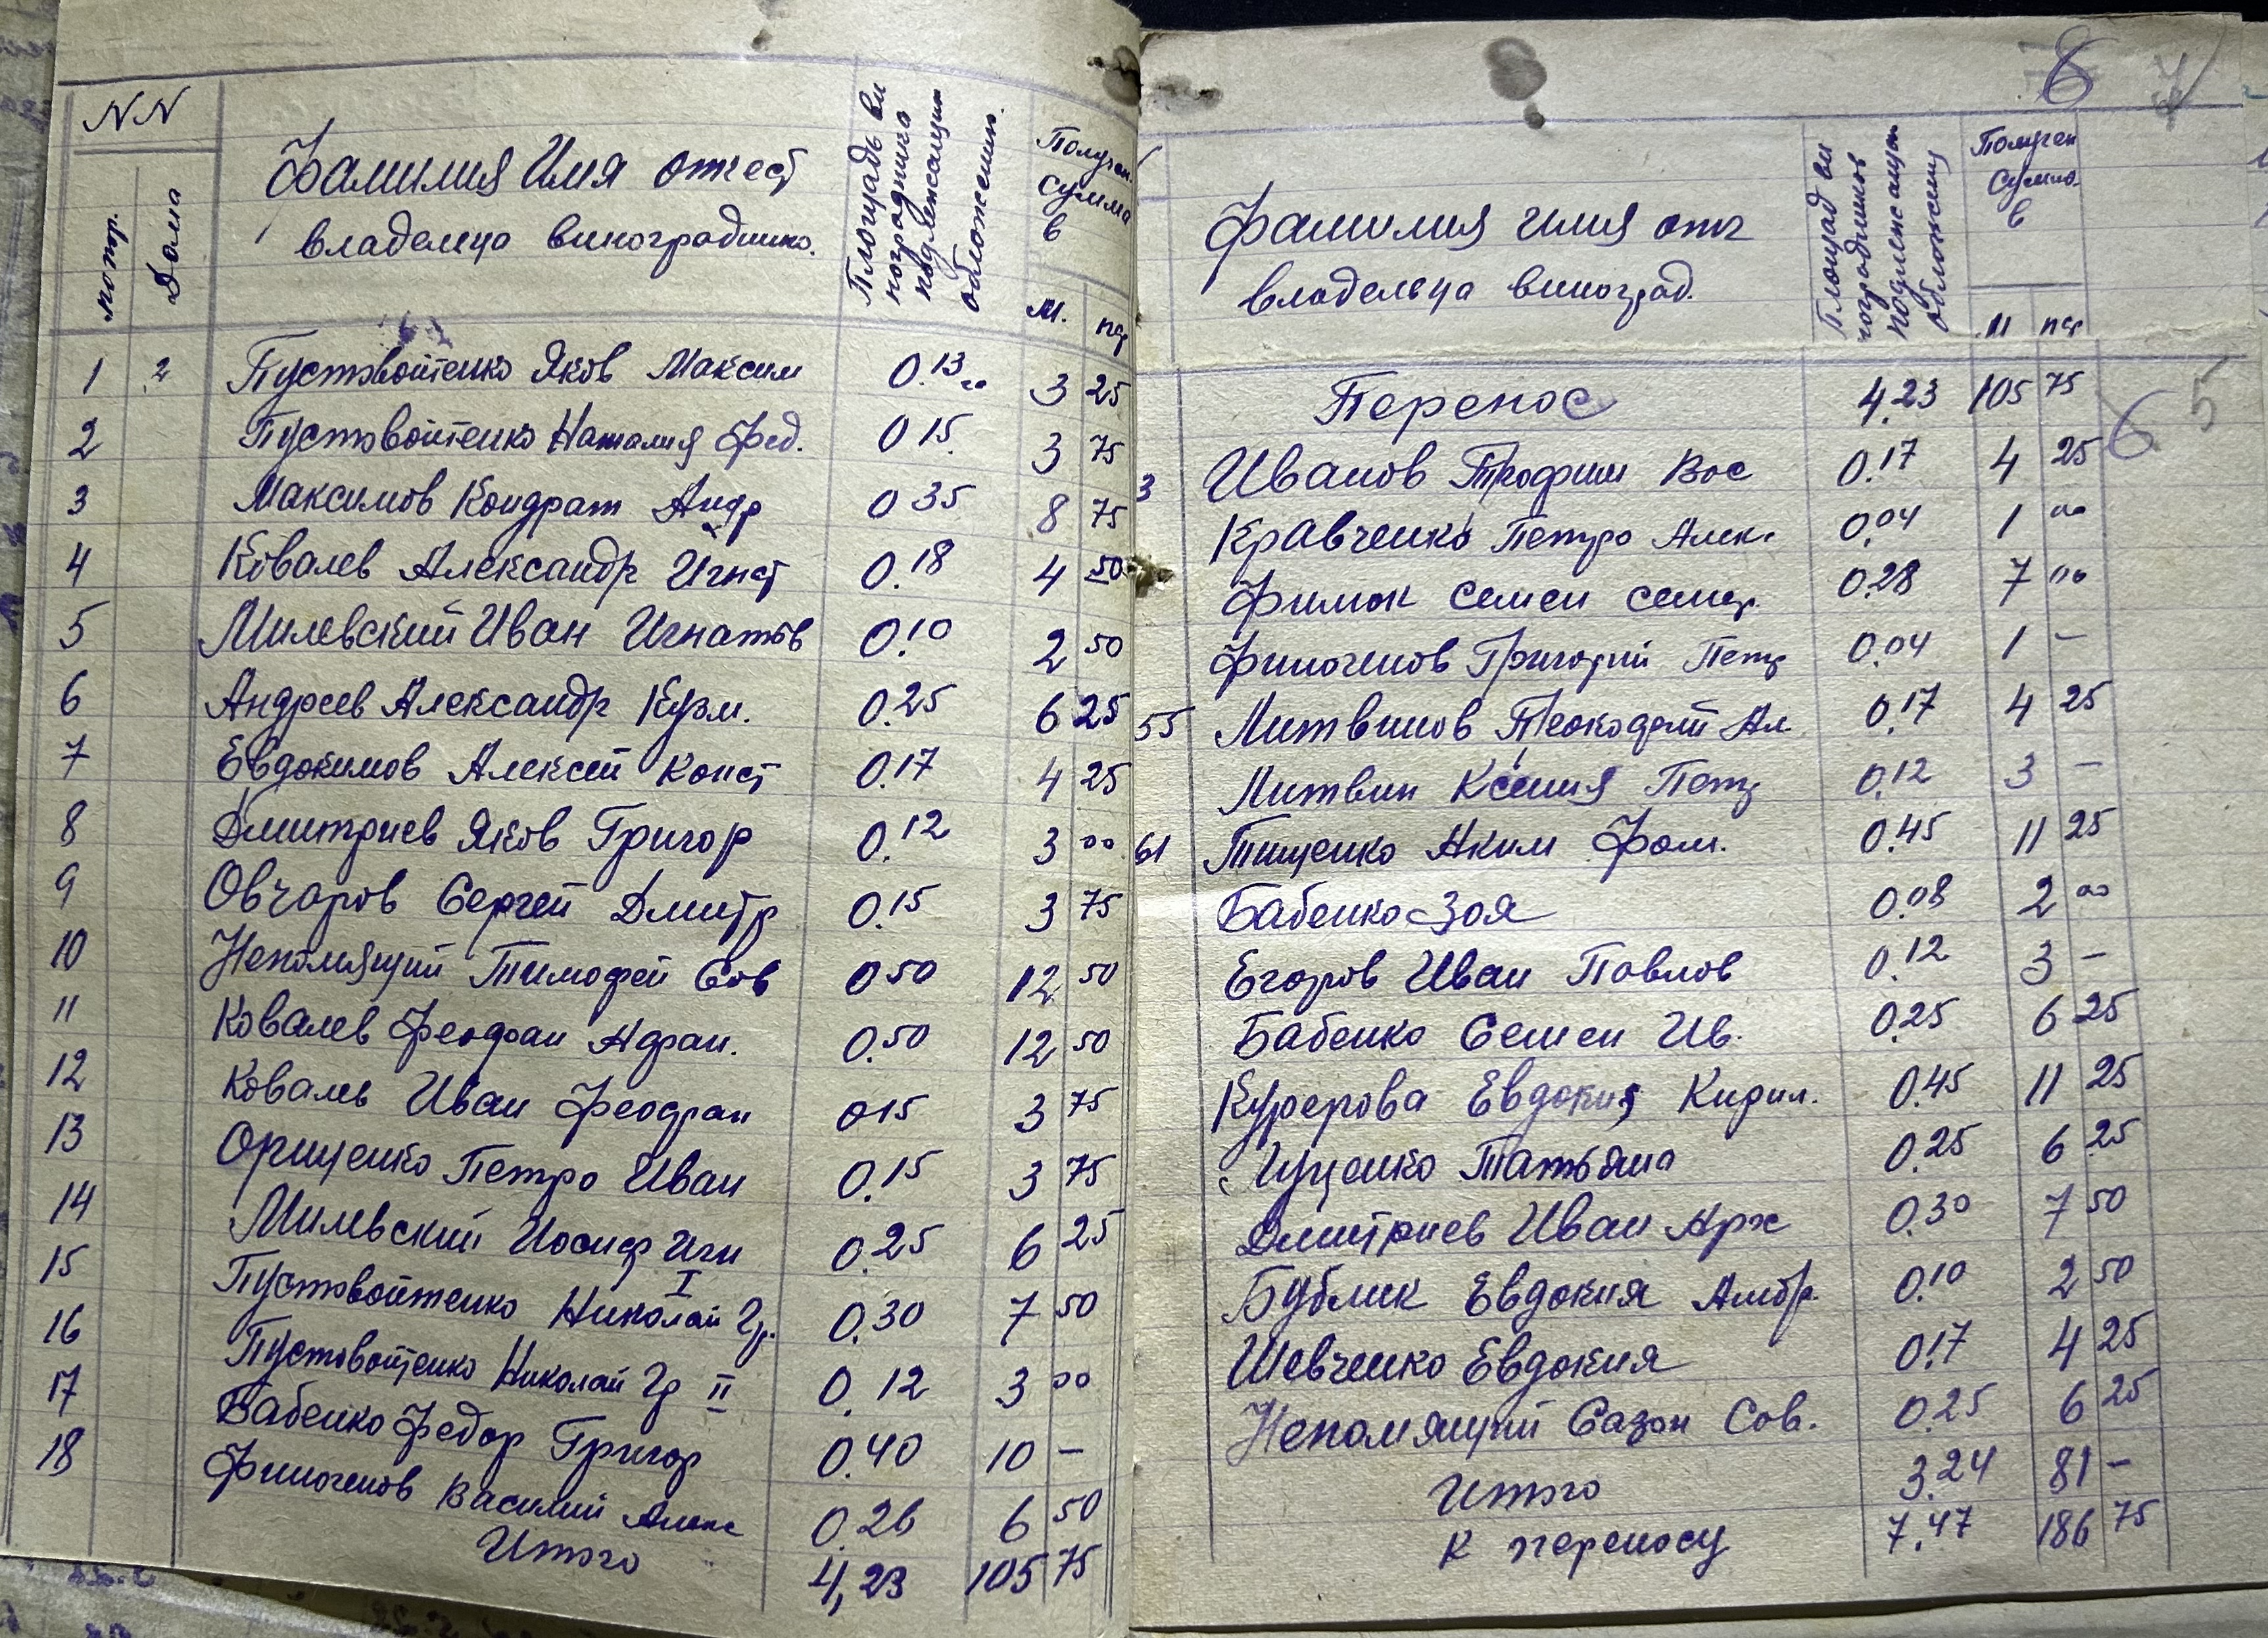 NN
Фамилия Имя отчест
владельца виноградника.
Дома
Площадь ви
ноградника
подлежащих
обложению.
Получен.
сумма
в
м. пф
1 2 Пустовойтенко Яков Максим 0.13 3 25
2 Пустовойтенко Наталия Фед. 0 15. 3 75
3 Максимов Кондрат Андр 0 35 8 75
4 Ковалев Александр Игнат 0.18 4 50
5 Милевский Иван Игнатов 0.10 2 50
6 Андреев Александр Кузм. 0.25 6 25
7 Евдокимов Алексей Конст 0.17 4 25
8 Дмитриев Яков Григор 0.12 3 00
9 Овчаров Сергей Дмитр 0.15 3 75
10 Непомящий Тимофей Сов 0 50 12 50
11 Ковалев Феофан Адан. 0.50 12 50
12 Ковалев Иван Феофан 0 15 3 75
13 Орищенко Петро Иван 0.15 3 75
14 Милевский Иосиф Игн 0.25 6 25
15 Пустовойтенко Николай Гр. I 0.30 7 50
16 Пустовойтенко Николай Гр II 0.12 3 00
17 Бабенко Федор Григор 0.40 10 –
18 Финогенов Василий Алекс 0.26 6 50
Итого 4,23 105 75
8 7
Фамилия имя отч
владельца виноград.
Площад ви
ноградников
подлежащих
обложению
Получен
сумма
в
м пф
Перенос 4.23 105 75
6 5
3 Иванов Трофим Вас 0.17 4 25
Кравченко Петро Алек. 0.04 1 00
Фимок Семен 0.28 7 00
Финогенов Григорий Петр 0.04 1 –
55 Литвинов Ал. 0.17 4 25
Литвин Ксения Петр 0.12 3 –
61 Тищенко Аким Фом. 0.45 11 25
Бабенко Зоя 0.08 2 00
Егоров Иван Павлов 0.12 3 –
Бабенко Семен Ив. 0.25 6 25
Евдокия Кирил. 0.45 11 25
Татьяна 0.25 6 25
Дмитриев Иван Арх 0.30 7 50
Бублик Евдокия Амбр. 0.10 2 50
Шевченко Евдокия 0.17 4 25
Непомящий Сазон Сов. 0.25 6 25
Итого 3.24 81 –
К переносу 7.47 186 75